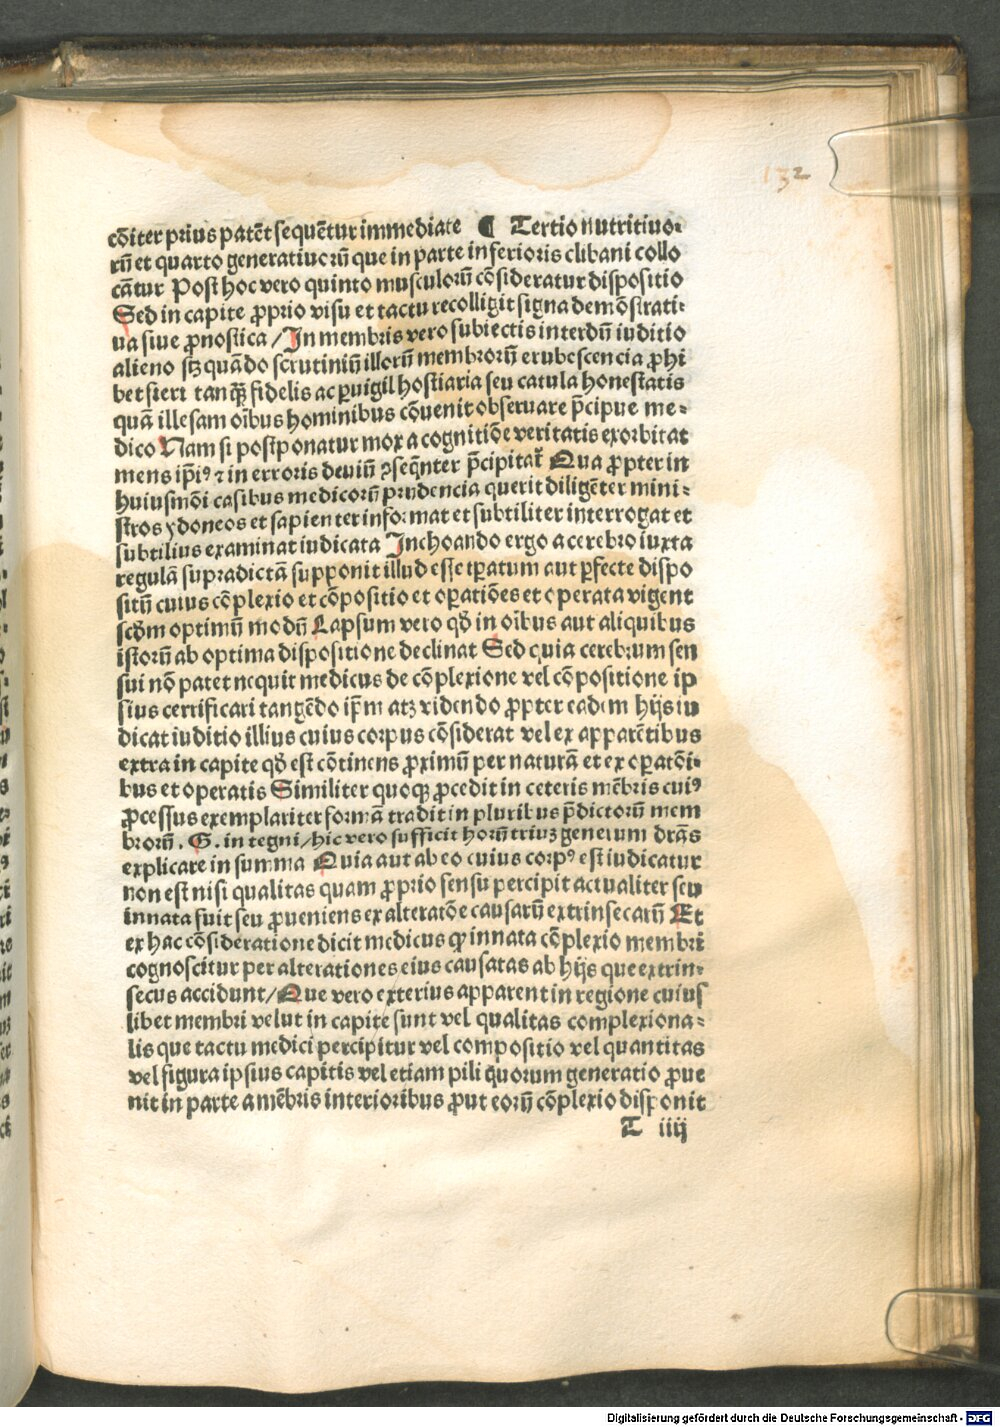 132
cōiter prius patēt sequētur immediate ¶ Tertio nutritiuo-
rū et quarto generatiuorū que in parte inferioris clibani collo
cātur Post hoc vero quinto musculorū cōsideratur dispositio
Sed in capite ꝓprio visu et tactu recolligit signa demōstrati-
ua siue ꝓnostica / In membris vero subiectis interdū iuditio
alieno stꝫ quādo scrutiniū illorū membrorū erubescencia ꝓhi
bet fieri tanqꝫ̄ fidelis ac ꝑuigil hostiaria seu catula honestatis
quā illesam oībus hominibus cōuenit obseruare p̄cipue me-
dico Nam si postponatur mox a cognitiōe veritatis exorbitat
mens ip̄iꝰ ⁊ in erroris deuiū ꝯseq̄nter p̄cipitat̄ Qua ꝓpter in
huiusmōi casibus medicorū prudencia querit diligēter mini-
stros ydoneos et sapienter informat et subtiliter interrogat et
subtilius examinat iudicata Inchoando ergo a cerebro iuxta
regulā supradictā supponit illud esse tꝑatum aut ꝑfecte dispo
sitū cuius cōplexio et cōpositio et oꝑatiōes et operata vigent
scd̄m optimū modū Lapsum vero qd̄ in oībus aut aliquibus
istorū ab optima dispositione declinat Sed quia cerebrum sen
sui nō patet nequit medicus de cōplexione vel cōpositione ip
sius certificari tangēdo ip̄m atꝫ videndo ꝓpter eadem hijs iu
dicat iuditio illius cuius corpus cōsiderat vel ex apparētibus
extra in capite qd̄ est cōtinens ꝓximū per naturā et ex oꝑatōi-
bus et operatis Similiter quoqꝫ ꝓcedit in ceteris mēbris cuiꝰ
ꝓcessus exemplariter formā tradit in pluribus p̄dictorū mem
brorū . G. in tegni / hic vero sufficit horū triuꝫ generum dr̄as
explicare in summa Quia aut ab eo cuius corpꝰ est iudicatur
non est nisi qualitas quam ꝓprio sensu percipit actualiter seu
innata fuit seu ꝓueniens ex alteratōe causarū extrinsecarū Et
ex hac cōsideratione dicit medicus ꝙ innata cōplexio membri
cognoscitur per alterationes eius causatas ab hijs que extrin-
secus accidunt / Que vero exterius apparent in regione cuius
libet membri velut in capite sunt vel qualitas complexiona-
lis que tactu medici percipitur vel compositio vel quantitas
vel figura ipsius capitis vel etiam pili quorum generatio ꝓue
nit in parte a mēbris interioribus ꝓut eorū cōplexio disponit
T iiij
Digitalisierung gefördert durch die Deutsche Forschungsgemeinschaft - DFG